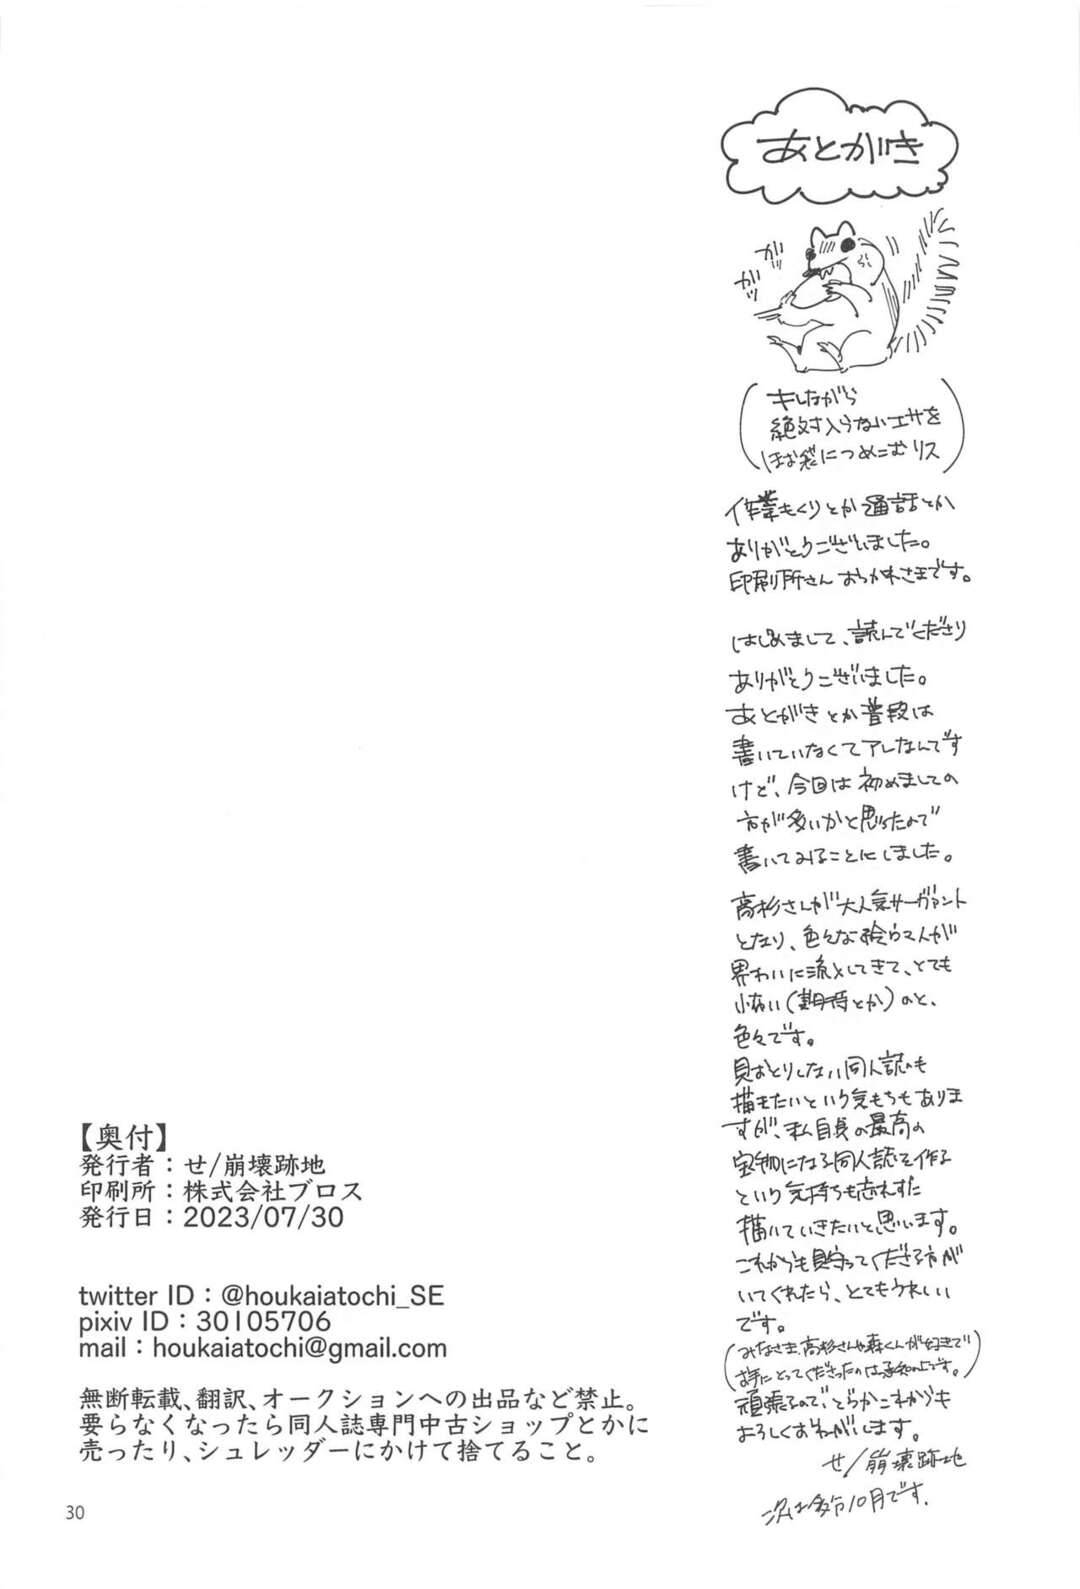 あとがき
ガッ
ガッ
キレながら
絶対入らないエサを
ほお袋につめこむリス
作業もくりとか通話とか
ありがとうございました。
印刷所さんおつかれさまです。
はじめまして、読んでくださり
ありがとうございました。
あとがきとか普段は
書いていなくてアレなんです
けど、今回は初めましての
方が多いかと思ったので
書いてみることにしました。
高杉さんが大人気サーヴァント
となり、色々な絵うマ人が
界わいに流入してきて、とても
怖い(期待とか)のと、
色々です。
見おとりしない同人誌も
描きたいという気もちもありま
すが、私自身の最高の
宝物になる同人誌を作る
という気持ちも忘れずに
描いていきたいと思います。
これからも見守ってくださる方が
いてくれたら、とてもうれしい
です。
(みなさま、高杉さんや森くんが好きで
お手にとってくださったのは承知の上です。)
頑張るので、どうかこれからも
よろしくおねがいします。
せ/崩壊跡地
次は多分10月です.
【奥付】
発行者：せ/崩壊跡地
印刷所：株式会社ブロス
発行日：2023/07/30
twitter ID：@houkaiatochi_SE
pixiv ID：30105706
mail：houkaiatochi@gmail.com
無断転載、翻訳、オークションへの出品など禁止。
要らなくなったら同人誌専門中古ショップとかに
売ったり、シュレッダーにかけて捨てること。
30